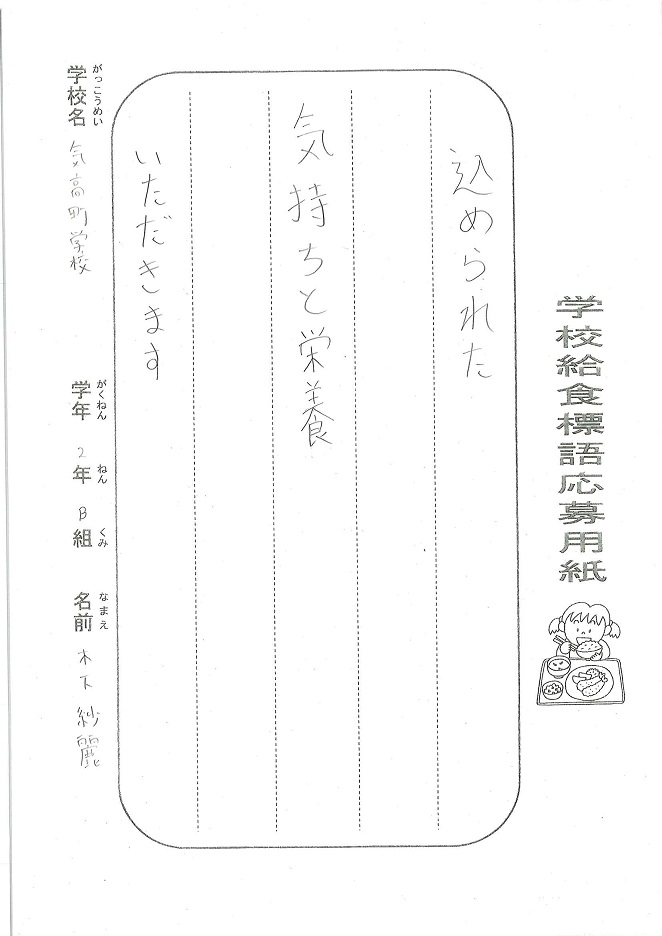 学校給食標語応募用紙
込められた
気持ちと栄養
いただきます
学校名 がっこうめい 気高町学校
学年 がくねん 2年 ねん B組 くみ 名前 なまえ 木下 紗麗